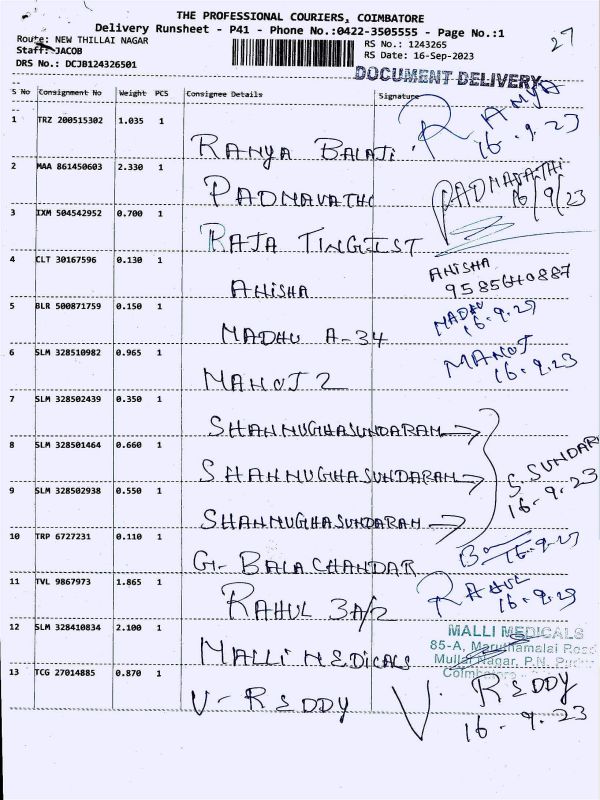 THE PROFESSIONAL COURIERS, COIMBATORE
Delivery Runsheet - P41 - Phone No.:0422-3505555 - Page No.:1
Route: NEW THILLAI NAGAR
Staff: JACOB
DRS No.: DCJB124326501
RS No.: 1243265
RS Date: 16-Sep-2023
27
DOCUMENT DELIVERY
S No Consignment No Weight PCS Consignee Details Signature
1 TRZ 200515302 1.035 1 RANYA BALAJI RAMYA 16.9.23
2 MAA 861450603 2.330 1 PADMAVATHI PADMAVATHI 16/9/23
3 IXM 504542952 0.700 1 RAJA TINGIST
4 CLT 30167596 0.130 1 ANISHA ANISHA 9585640887
5 BLR 500871759 0.150 1 MADHU A-34 MADHU 16.9.23
6 SLM 328510982 0.965 1 MANOJ 2 MANOJ 16.9.23
7 SLM 328502439 0.350 1 SHANMUGHASUNDARAM
8 SLM 328501464 0.660 1 SHANMUGHASUNDARAM S. SUNDAR 16-9.23
9 SLM 328502938 0.550 1 SHANMUGHASUNDARAM
10 TRP 6727231 0.110 1 G. BALACHANDAR 16-9-23
11 TVL 9867973 1.865 1 RAHUL 3A/2 RAHUL 16.9.23
12 SLM 328410834 2.100 1 MALLI MEDICALS MALLI MEDICALS
85-A, Maruthamalai Road
Mullai Nagar, P.N.
13 TCG 27014885 0.870 1 V-REDDY V. REDDY 16.9.23